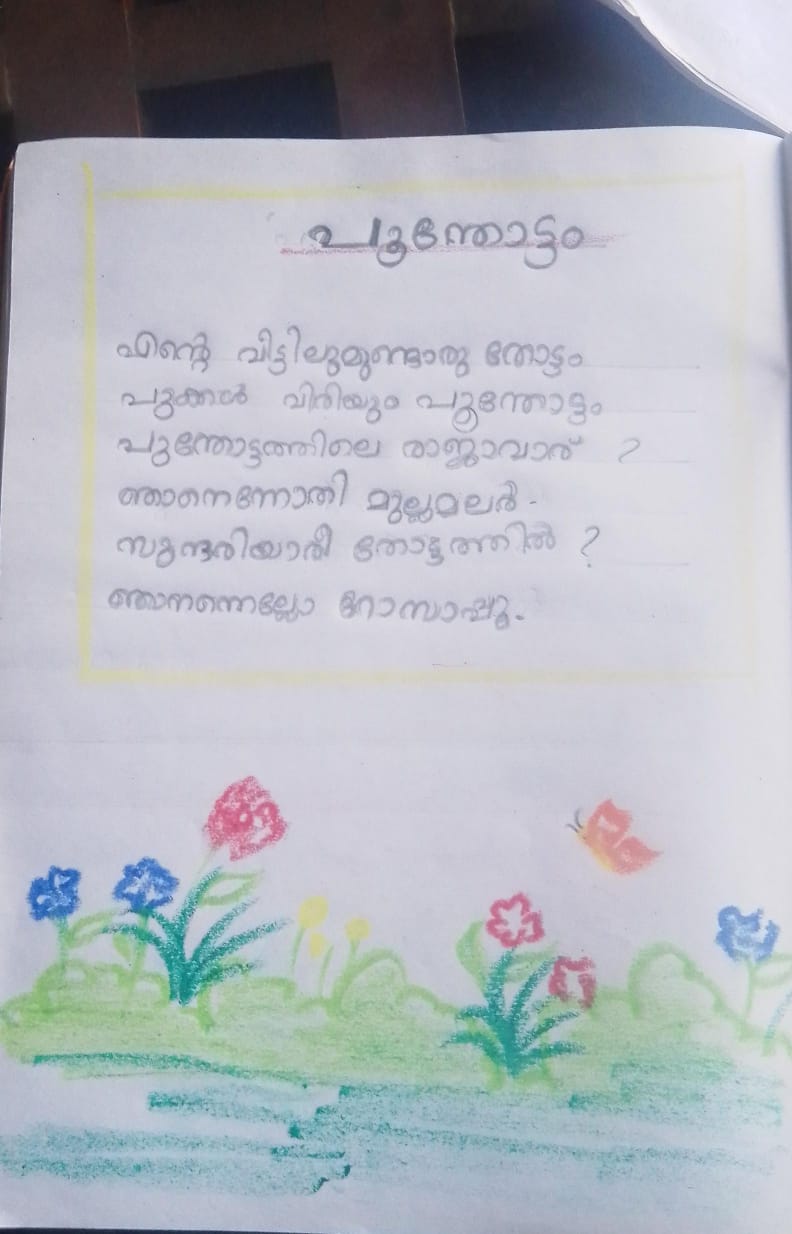 പൂന്തോട്ടം
എന്റെ വീട്ടിലുമുണ്ടൊരു തോട്ടം
പുക്കൾ വിരിയും പൂന്തോട്ടം
പുന്തോട്ടത്തിലെ രാജാവാര് ?
ഞാനെന്നോതി മുല്ലമലർ.
സുന്ദരിയാരീ തോട്ടത്തിൽ ?
ഞാനന്നെല്ലോ റോസാപ്പൂ.